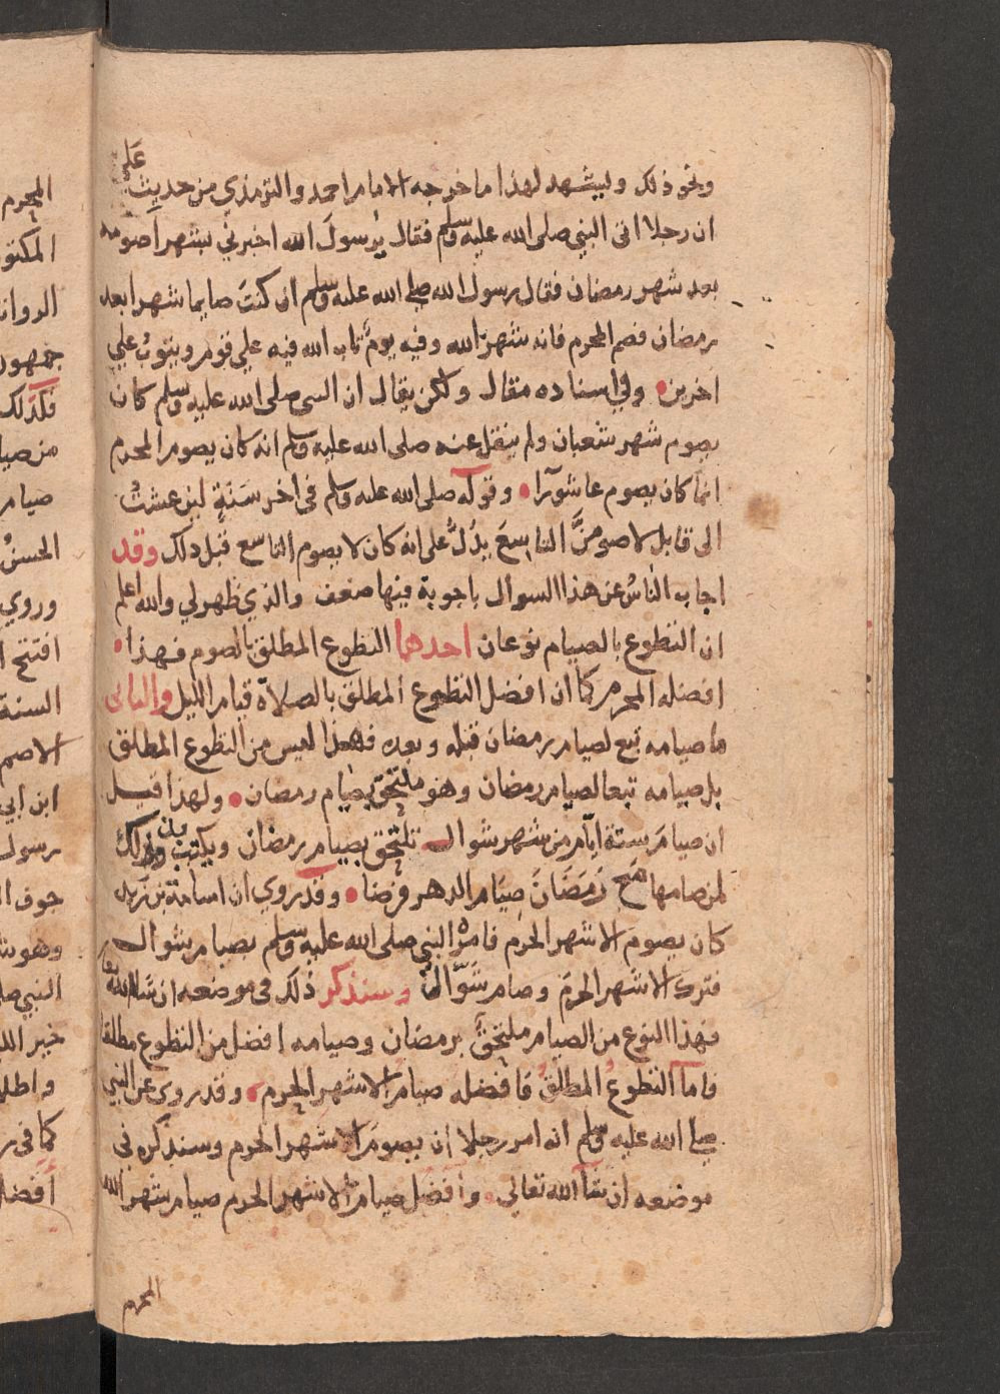 ونحو ذلك ويشهد لهذا ما خرجه الامام احمد والترمذي من حديث علي
ان رجلا اتى النبي صلى الله عليه وسلم فقال يرسول الله اخبرني بشهر اصومه
بعد شهر رمضان فقال رسول الله صلى الله عليه وسلم ان كنت صايما شهرا بعد
رمضان فصم المحرم فانه شهر الله وفيه يوم تاب الله فيه على قوم ويتوب على
اخرين وفي اسناده مقال ولكن يقال ان النبي صلى الله عليه وسلم كان
يصوم شهر شعبان ولم ينقل عنه صلى الله عليه وسلم انه كان يصوم المحرم
انما كان يصوم عاشورآا وقوله صلى الله عليه وسلم في اخر سنة لين عشت
الى قابل لاصومن التاسع يدل على انه كان لا يصوم التاسع قبل ذلك وقد
اجاب الناس عن هذا السوال باجوبة فيها ضعف والذي ظهر لي والله اعلم
ان التطوع بالصيام نوعان احدهما التطوع المطلق بالصوم فهذا
افضله المحرم كما ان افضل التطوع المطلق بالصلاة قيام الليل والثاني
ما صيامه تبع لصيام رمضان قبله وبعده فهذا ليس من التطوع المطلق
بل صيامه تبعا لصيام رمضان وهو ملتحق بصيام رمضان ولهذا قيل
ان صيام ستة ايام من شهر شوال تلتحق بصيام رمضان ويكتب بذلك
لمن صامها مع رمضان صيام الدهر فرضا وقد روي ان اسامة بن زيد
كان يصوم الاشهر الحرم فامره النبي صلى الله عليه وسلم بصيام شوال
فترك الاشهر الحرم وصام شوالا وسنذكر ذلك في موضعه ان شا الله تعا
فهذا النوع من الصيام ملتحق برمضان وصيامه افضل من التطوع مطلقا
فاما التطوع المطلق فافضله صيام الاشهر الحرم وقد روي عن النبي
صلى الله عليه وسلم انه امر رجلا ان يصوم الاشهر الحرم وسنذكره في
موضعه ان شآ الله تعالى وافضل صيام الاشهر الحرم صيام شهر الله
المحرم